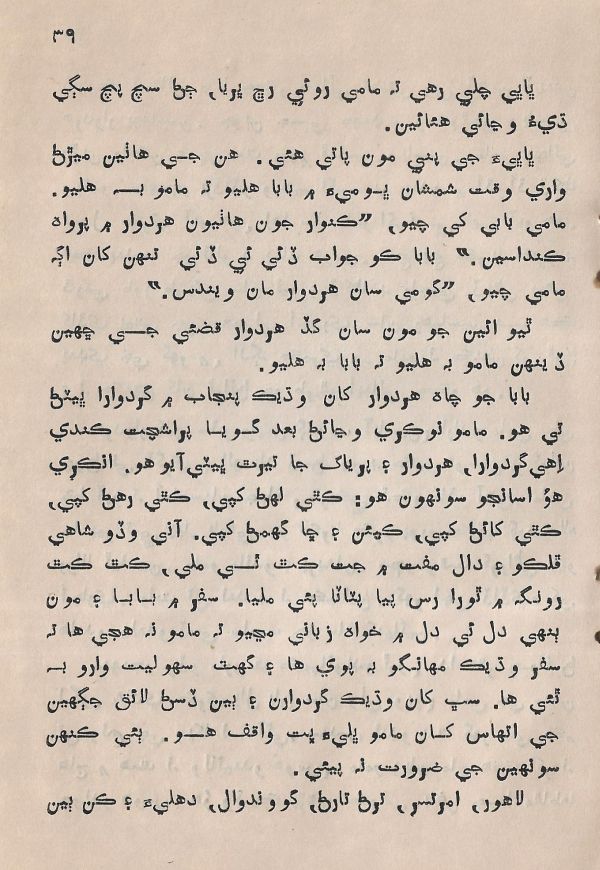 ٣٩
ڀاڀي چلي رهي ته مامي روئي رڇ ڀريا، ڄڻ سچ پچ سڳي
ڌيءُ وڃائي هئائين.
ڀاڀيءَ جي پٺي مون پائي هئي. هن جي هاٺين ميڙڻ
واري وقت شمشان ڀوميءَ ۾ بابا هليو ته مامو به هليو.
مامي بابي کي چيو، ”ڪنوار جون هاٺيون هردوار ۾ پرواه
ڪنداسين.“ بابا ڪو جواب ڏئي ئي ڏئي تنهن کان اڳ
مامي چيو، ”گومي سان هردوار مان ويندس.“
ٿيو ائين جو مون سان گڏ هردوار قضئي جي ڇهين
ڏينهن مامو به هليو ته بابا به هليو.
بابا جو چاه هردوار کان وڌيڪ پنجاب ۾ گردوارا ڀيٽڻ
ئي هو. مامو نوڪري وڃائڻ بعد گويا پراشچت ڪندي
اِهي گردوارا، هردوار ۽ پرياگ جا تيرٿ ڀيٽي آيو هو. انڪري
هؤ اسانجو سونهون هو: ڪٿي لهڻ کپي، ڪٿي رهڻ کپي،
ڪٿي کائڻ کپي، ڪيئن ۽ ڇا گهمڻ کپي. آني وڏو شاهي
ڦلڪو ۽ دال مفت ۾ جٿ ڪٿ ٿي ملي، ڪٿ ڪٿ
رونگه ۾ ٿورا رس پيا پٽاٽا پڻي مليا. سفر ۾ بابا ۽ مون
ٻنهي دل ئي دل ۾ خواه زباني مڃيو ته مامو نه هجي ها ته
سفر وڌيڪ مهانگو به پوي ها ۽ گهٽ سهوليت وارو به
ٿئي ها. سڀ کان وڌيڪ گردوارن ۽ ٻين ڏسڻ لائق جڳهين
جي اتهاس کان مامو ڀليءَ ڀت واقف هو. ٻئي ڪنهن
سونهين جي ضرورت نه پيئي.
لاهور، امرتسر، ترڻ تارڻ، گووندوال، دهليءَ ۽ ڪن ٻين